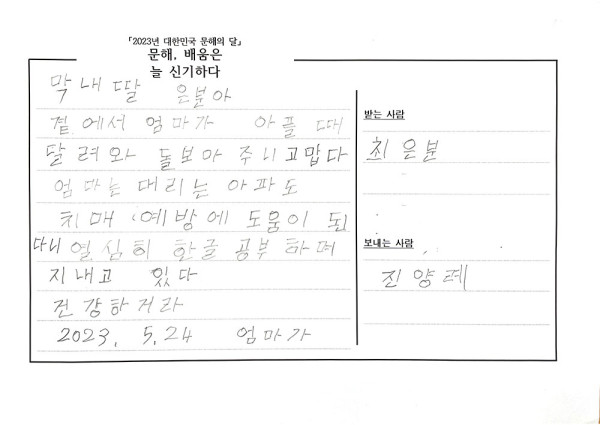 『2023년 대한민국 문해의 달』
문해, 배움은
늘 신기하다
막내딸 은분아
곁에서 엄마가 아플때
달려와 돌보아 주니고맙다
엄마는 대리는 아파도
치매 예방에 도움이 된
다니 열심히 한글 공부하며
지내고 있다
건강하거라
2023. 5.24 엄마가
받는 사람
최은분
보내는 사람
진양례